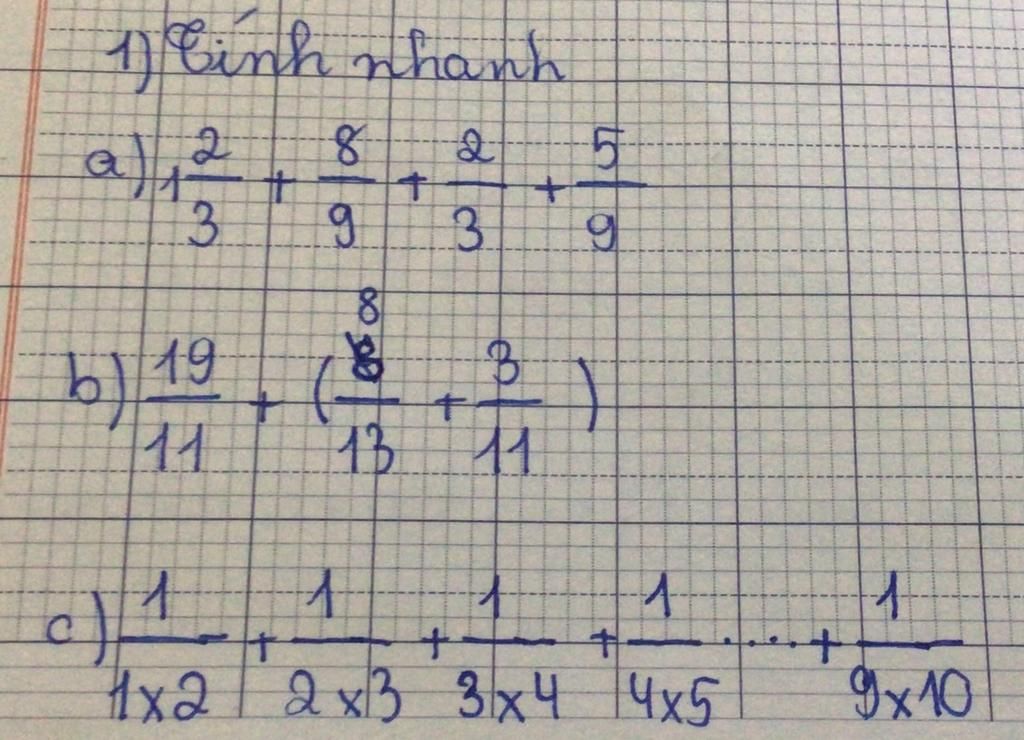 1) Tính nhanh
a) 1 2/3 + 8/9 + 2/3 + 5/9
b) 19/11 + ( 8/13 + 3/11 )
c) 1/1x2 + 1/2x3 + 1/3x4 + 1/4x5 ..... + 1/9x10